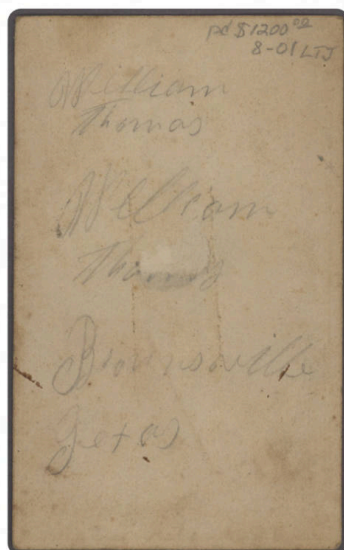 pd $1200.00
8-01 LTJ
William
Thomas
William
Thomas
Brownsville
Texas